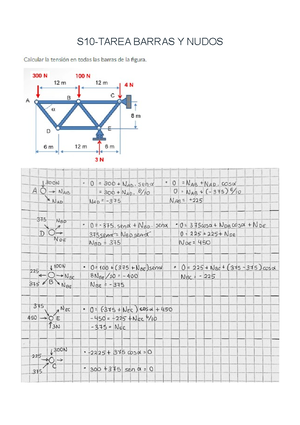 S10-TAREA BARRAS Y NUDOS
Calcular la tensión en todas las barras de la figura.
300 N
100 N
12 m
12 m
4 N
A
B
C
α
8 m
D
E
6 m
12 m
6 m
3 N
300N
A
NAB
NAD
• 0 = 300 + NAD . senα
= 300 + NAD . 8/10
NAD = -375
• 0 = NAB + NAD . cosα
0 = NAB + (-375) 6/10
NAB = 225
375
NBD
D
NDE
• 0 = -375 . senα + NBD . senα
375 senα = NBD senα
NBD = 375
• 0 = 375cosα + NDB cosα + NDE
0 = 225 + 225 + NDE
NDE = 450
100N
225
NBC
375
B
NBE
• 0 = 100 + (375 + NBE) senα
8NBE/10 = -400
NBE = -375
• 0 = 225 + NBC + (375 - 375) cosα
NBC = -225
375
NEC
450
E
3N
• 0 = (-375 + NEC) cosα + 450
-450 = -225 + NEC 6/10
-375 = NEC
300N
225
C
375
• = -225 + 375 cosα = 0
• 300 + 375 sen α = 0